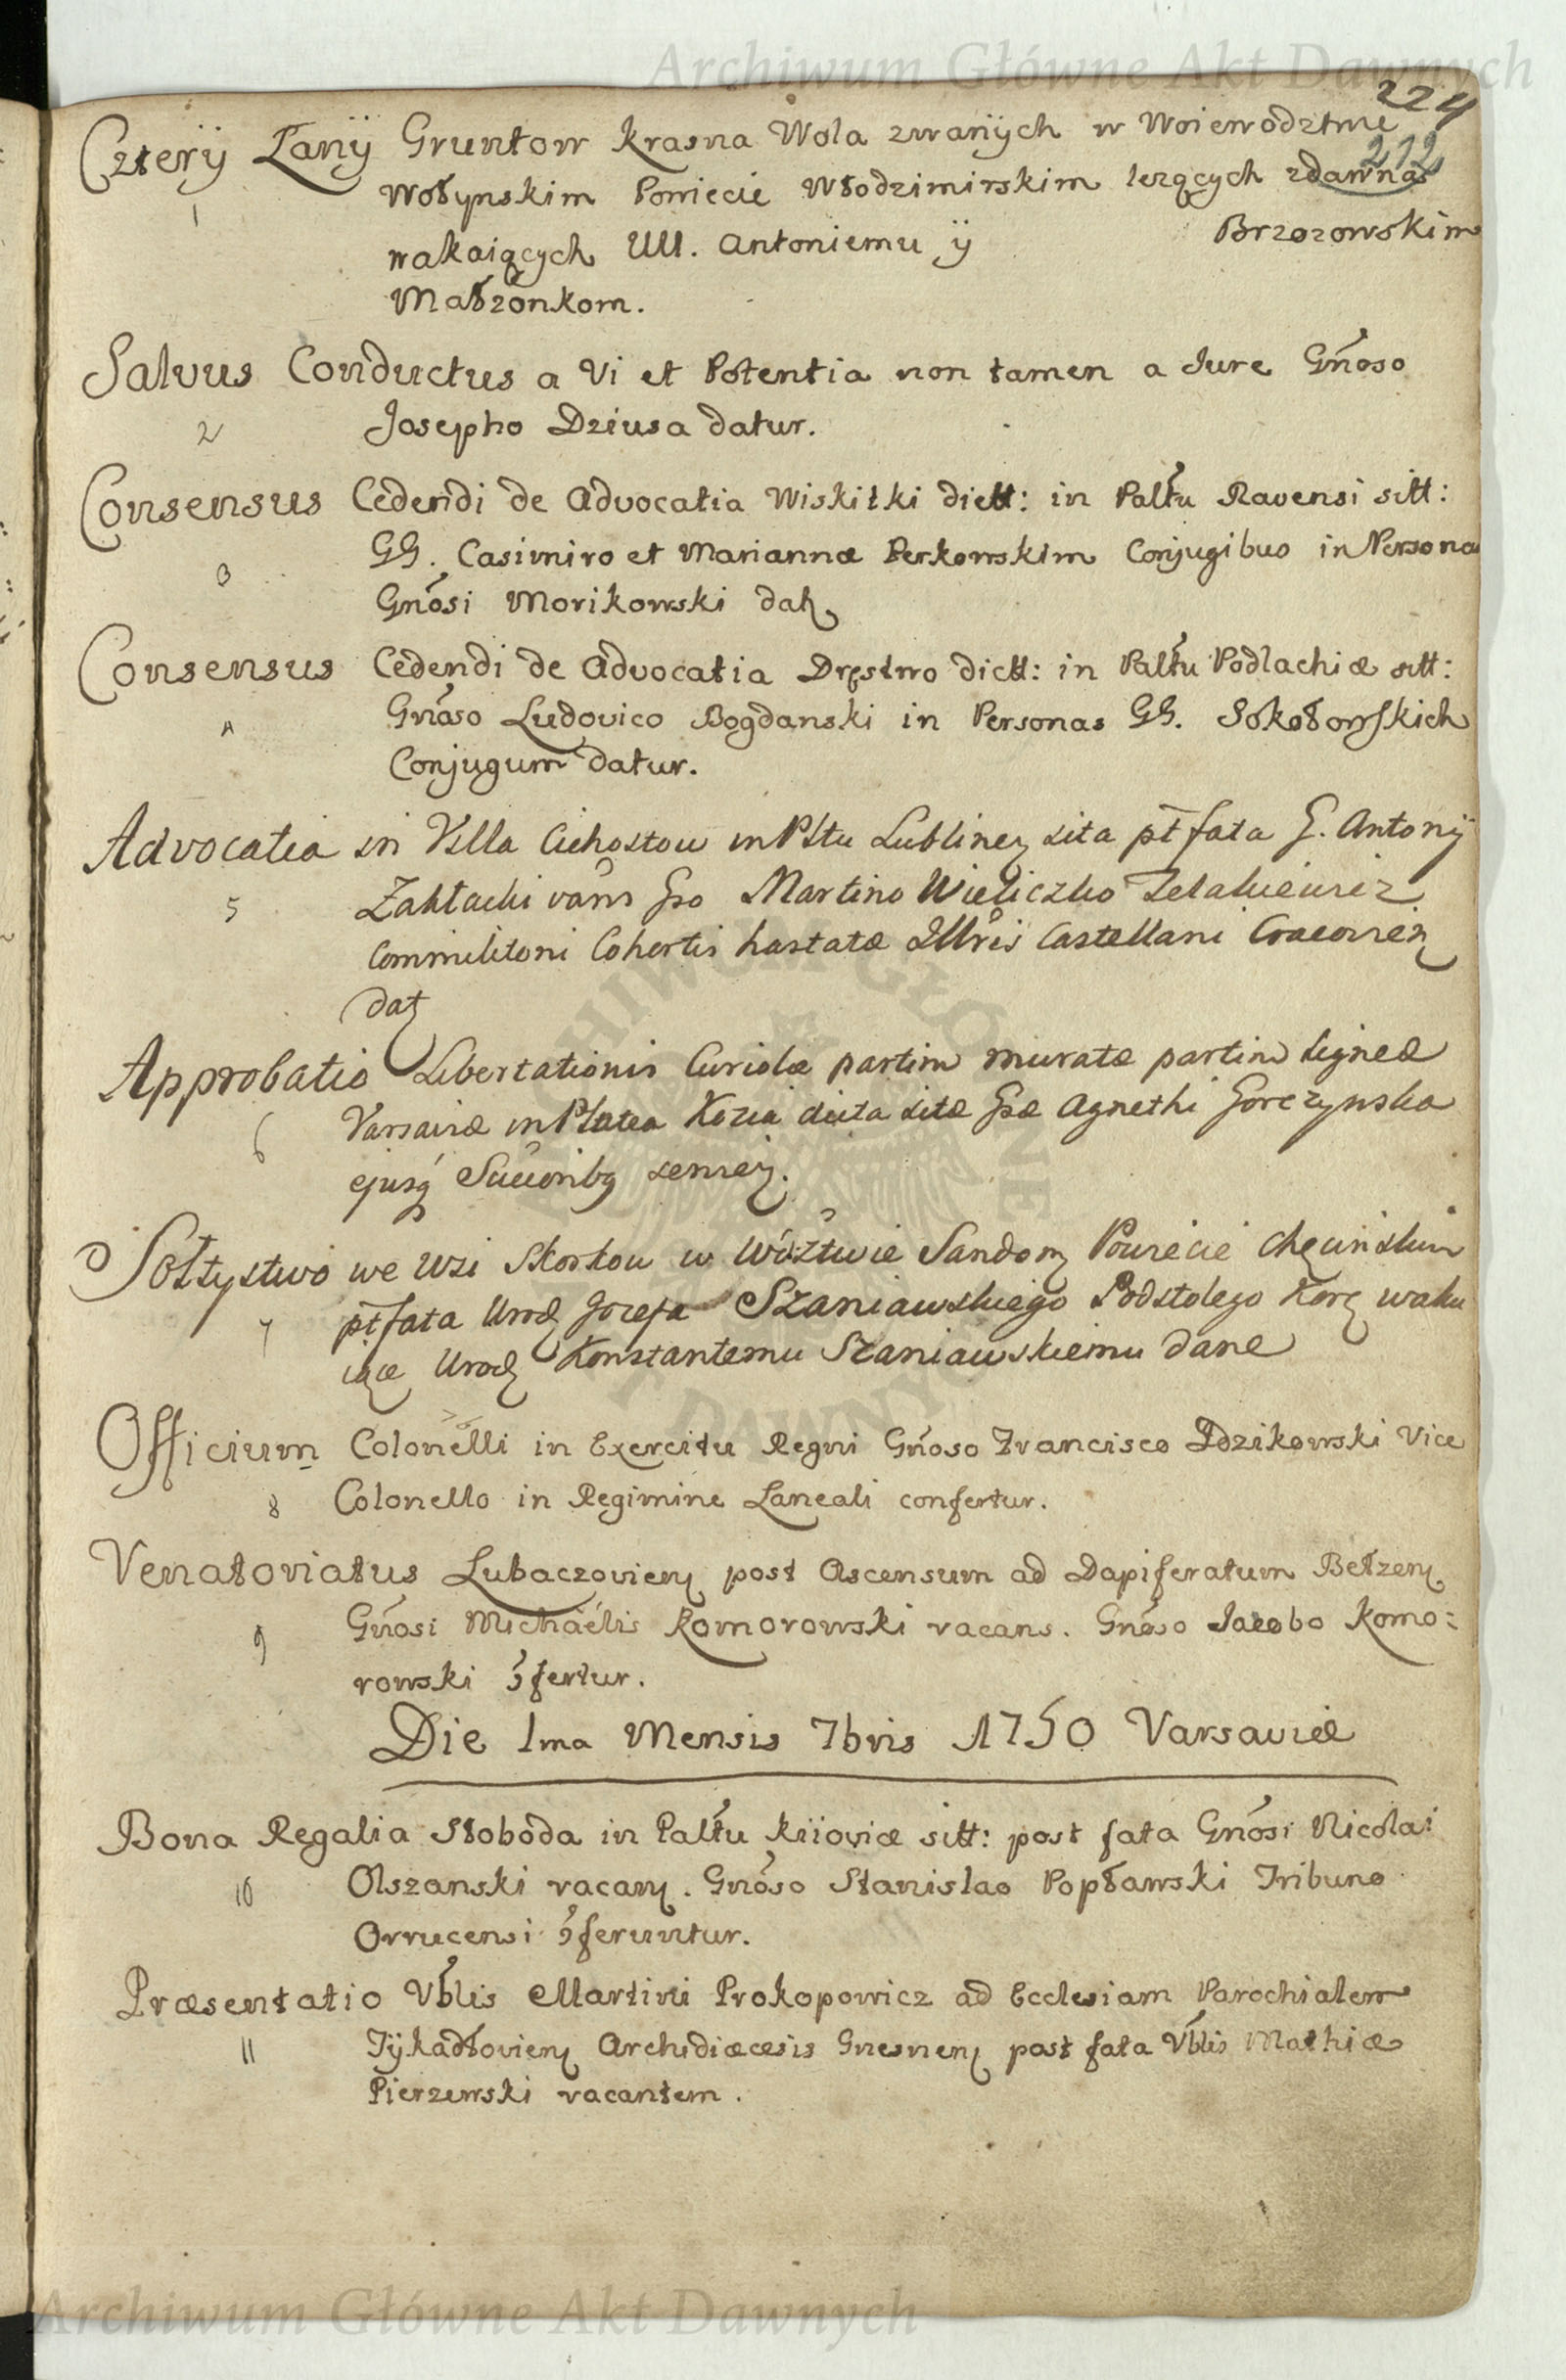 Archiwum Główne Akt Dawnych
224
212
Czterÿ Łanÿ Gruntow Krasna Wola zwanÿch w Woiewodztwie
1
Wołynskim Powiecie Włodzimirskim lezących zdawna
wakaiących UU. Antoniemu ÿ Brzozowskim
Małzonkom.
Salvus Conductus a Vi et Potentia non tamen a Jure Gnoso
2
Josepho Dziusa datur.
Consensus Cedendi de Advocatia Wiskitki dictt: in Palttu Ravensi sitt:
3
GG. Casimiro et Mariannæ Perkowskim Conjugibus in Persona
Gnosi Morikowski dat
Consensus Cedendi de Advocatia Dręstwo dictt: in Palttu Podlachiæ sitt:
4
Gnoso Ludovico Bogdanski in Personas GG. Sokołowskich
Conjugum datur.
Advocatia in Villa Cichostow in Pltu Lublinen sita pt fata G. Antonÿ
5
Zakłacki vans Gso Martino Wieliczko
Commilitoni Cohortis hastatæ Illris Castellani Cracovien
dat
Approbatio Libertationis Curiolæ partim muratæ partim ligneæ
6
Varsaviæ in Platea Kozia dicta sitæ Gsæ Agnethi Gorczynska
ejusq Succoribq servien.
Sołtystwo we Wsi Skorkow w Wództwie Sandom Powiecie Chęcinskim
7
pt fata Urodz Jozefa Szaniawskiego Podstolego Kor waku
iące Urodz Konstantemu Szaniawskiemu dane
Officium Colonelli in Exercitu Regni Gnoso Francisco Dzikowski Vice
8
Colonello in Regimine Laneali confertur.
Venatoriatus Lubaczovien post Ascensum ad Dapiferatum Bełzen
9
Gnosi Michaelis Komorowski vacans. Gnoso Jacobo Komo:
rowski ꝯfertur.
Die 1ma Mensis 7bris 1750 Varsaviæ
Bona Regalia Słoboda in Palttu Kiioviæ sitt: post fata Gnosi Nicolai
10
Olszanski vacan. Gnoso Stanislao Popławski Tribuno
Owrucensi ꝯferuntur.
Præsentatio Vblis Martini Prokopowicz ad Ecclesiam Parochialem
11
Tÿkadłovien Archidiæcesis Gnesnen post fata Vblis Mathiæ
Pierzewski vacantem.
Archiwum Główne Akt Dawnych